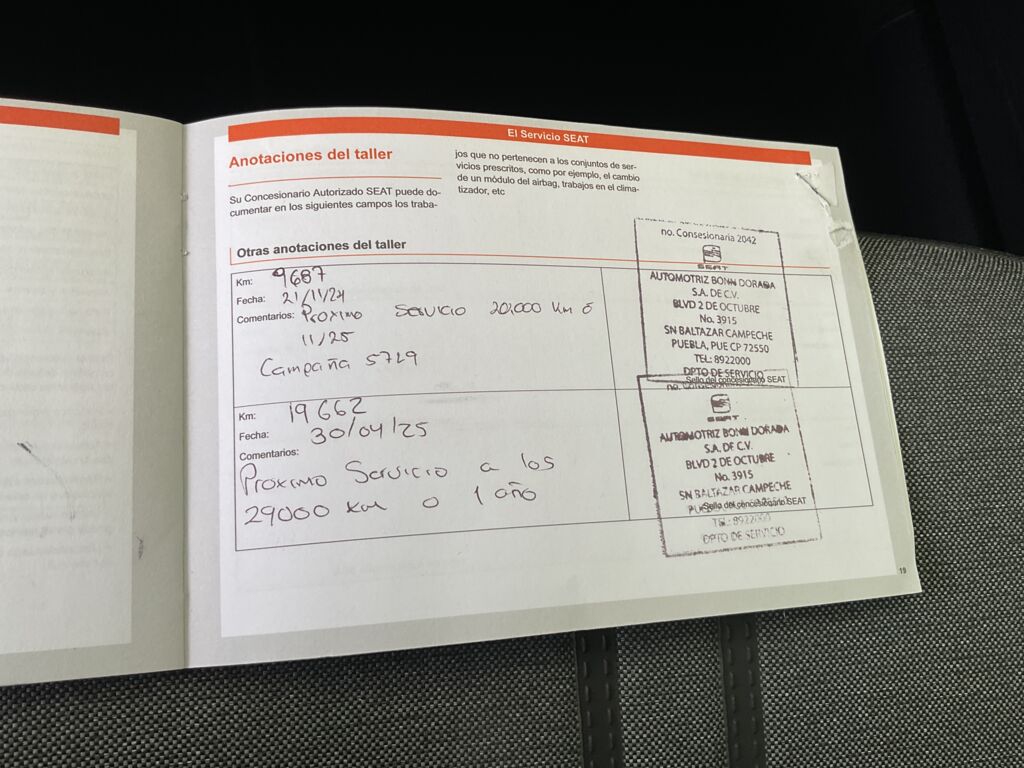 El Servicio SEAT
Anotaciones del taller
Su Concesionario Autorizado SEAT puede do-
cumentar en los siguientes campos los traba-
jos que no pertenecen a los conjuntos de ser-
vicios prescritos, como por ejemplo, el cambio
de un módulo del airbag, trabajos en el clima-
tizador, etc
Otras anotaciones del taller
Km: 9687
Fecha: 21/11/24
Comentarios: Proximo Servicio 20,000 Km ó
11/25
Campaña 5729
no. Consesionaria 2042
SEAT
AUTOMOTRIZ BONN DORADA
S.A. DE C.V.
BLVD 2 DE OCTUBRE
No. 3915
SN BALTAZAR CAMPECHE
PUEBLA, PUE CP 72550
TEL: 8922000
DPTO DE SERVICIO
Sello del concesionario SEAT
Km: 19662
Fecha: 30/04/25
Comentarios:
Proximo Servicio a los
29000 Km o 1 año
SEAT
AUTOMOTRIZ BONN DORADA
S.A. DE C.V.
BLVD 2 DE OCTUBRE
No. 3915
SN BALTAZAR CAMPECHE
Sello del concesionario SEAT
TEL: 8922000
DPTO DE SERVICIO
19